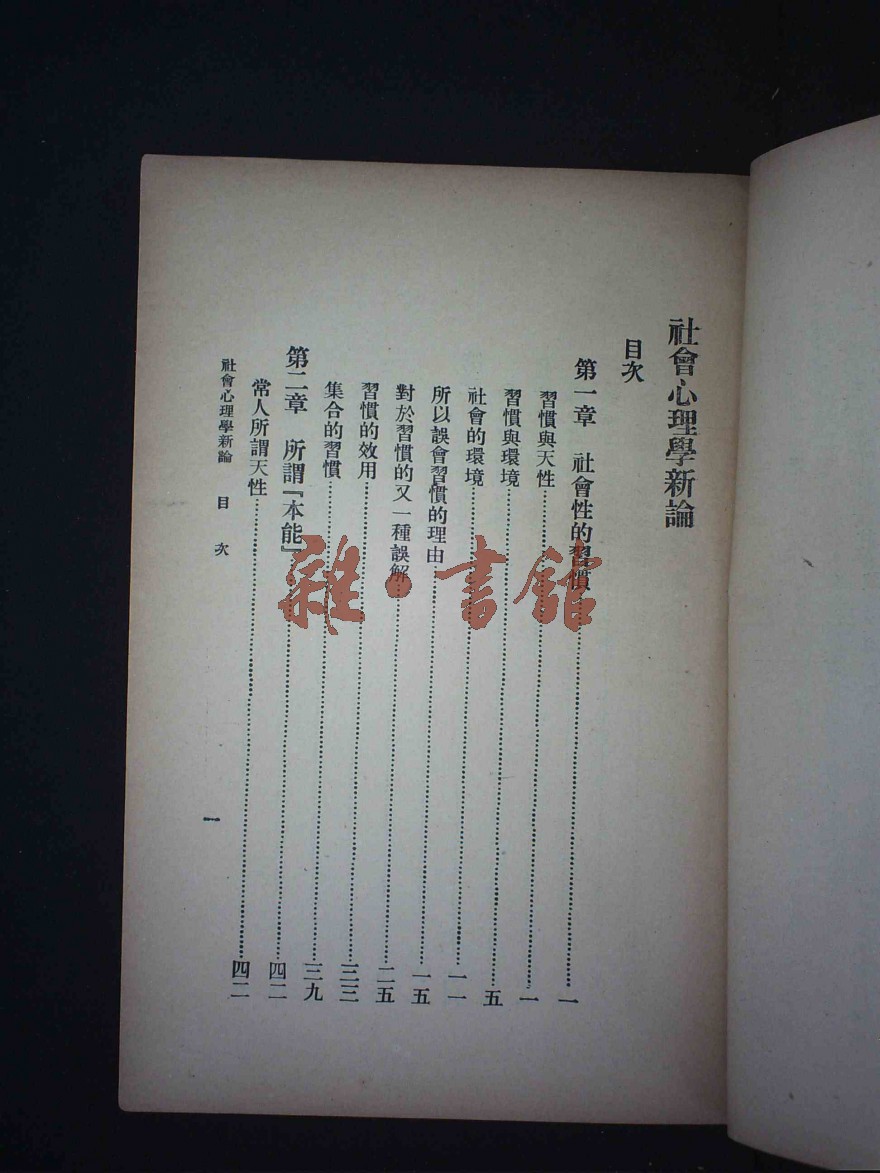 社會心理學新論
目次
第一章 社會性的習慣……一
習慣與天性……一
習慣與環境……五
社會的環境……一一
所以誤會習慣的理由……一五
對於習慣的又一種誤解……二五
習慣的效用……三三
集合的習慣……三九
第二章 所謂『本能』……四二
常人所謂天性……四二
社會心理學新論 目次
一
雜·書館